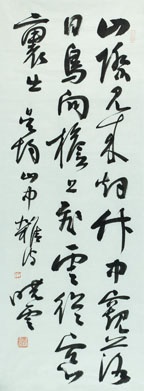 山際見来烟竹中窺落
日鳥向檐上飛雲從窗
裏出 吴均山中雜詩 曉雲